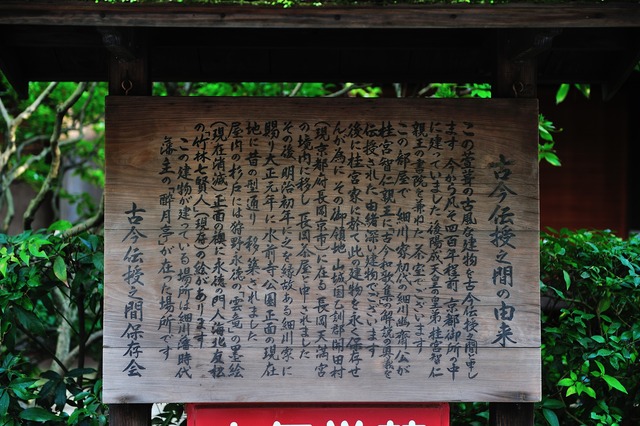 古今伝授之間の由来
この萱葺の古風な建物を古今伝授之間と申し
ます 今から凡そ四百年程前 京都御所の中
に建っていました 後陽成天皇の皇弟 桂宮智仁
親王の書院を兼ねた茶室でございます
この部屋で 細川家初代の細川幽斎公が
桂宮智仁親王に古今和歌集の解説の奥義を
伝授された由緒深い建物でございます
後に桂宮家に於て此の建物を永く保存せ
んが為に その御領地 山城国乙訓郡開田村
(現京都府長岡京市)に在る 長岡天満宮
の境内に移し 長岡茶屋と申されました
その後 明治初年に之を縁故ある細川家に
賜り大正元年に 水前寺公園正面の現在
地に昔の型通り 移し築されました
屋内の杉戸には狩野永徳の雲竜の墨絵
(現在消滅)正面の襖に永徳の門人海北友松
の竹林七賢人(現存)の絵があります
この建物が建っている場所は細川藩時代
藩主の「酔月亭」が在った場所です
古今伝授之間保存会